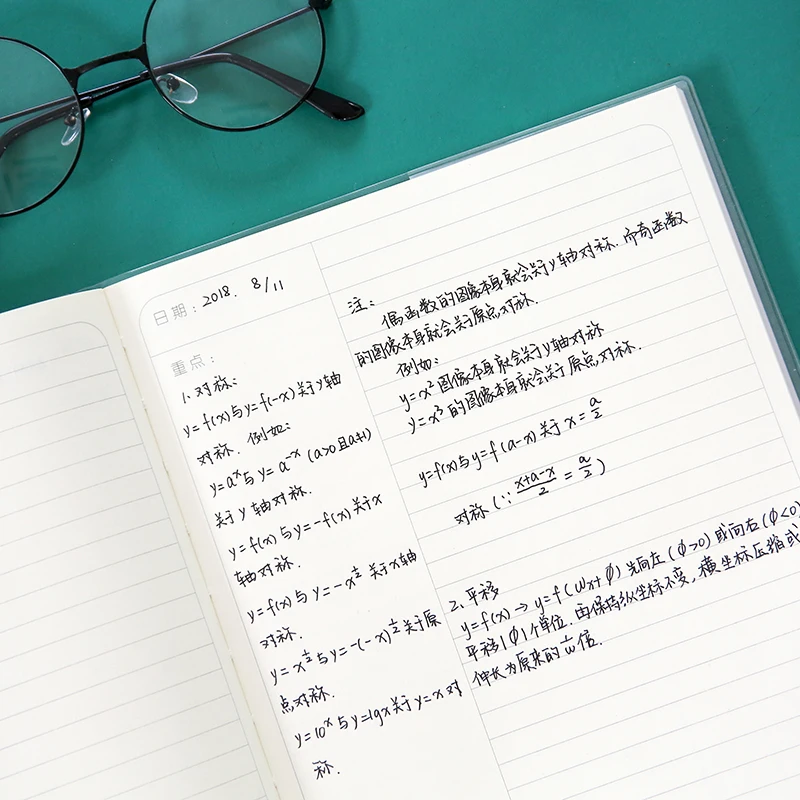 日期：2018. 8/11
重点：
1. 对称：
y=f(x)与y=f(-x)关于y轴
对称. 例如：
y=aˣ与y=a⁻ˣ (a>0且a≠1)
关于y轴对称.
y=f(x)与y=-f(x)关于x
轴对称.
y=f(x)与y=-x^½ 关于x轴
对称.
y=x^½与y=-(-x)^½关于原
点对称.
y=10ˣ与y=lgx关于y=x对
称.
注：
偶函数的图像本身就会关于y轴对称. 而奇函数
的图像本身就会关于原点对称.
例如：
y=x²图像本身就会关于y轴对称
y=x³的图像本身就会关于原点对称.
y=f(x)与y=f(a-x)关于x=a/2
对称(∵(x+a-x)/2=a/2)
2. 平移
y=f(x)→y=f(ωx+φ)先向左(φ>0)或向右(φ<0)
平移|φ|个单位. 再保持纵坐标不变, 横坐标压缩或
伸长为原来的1/ω倍.